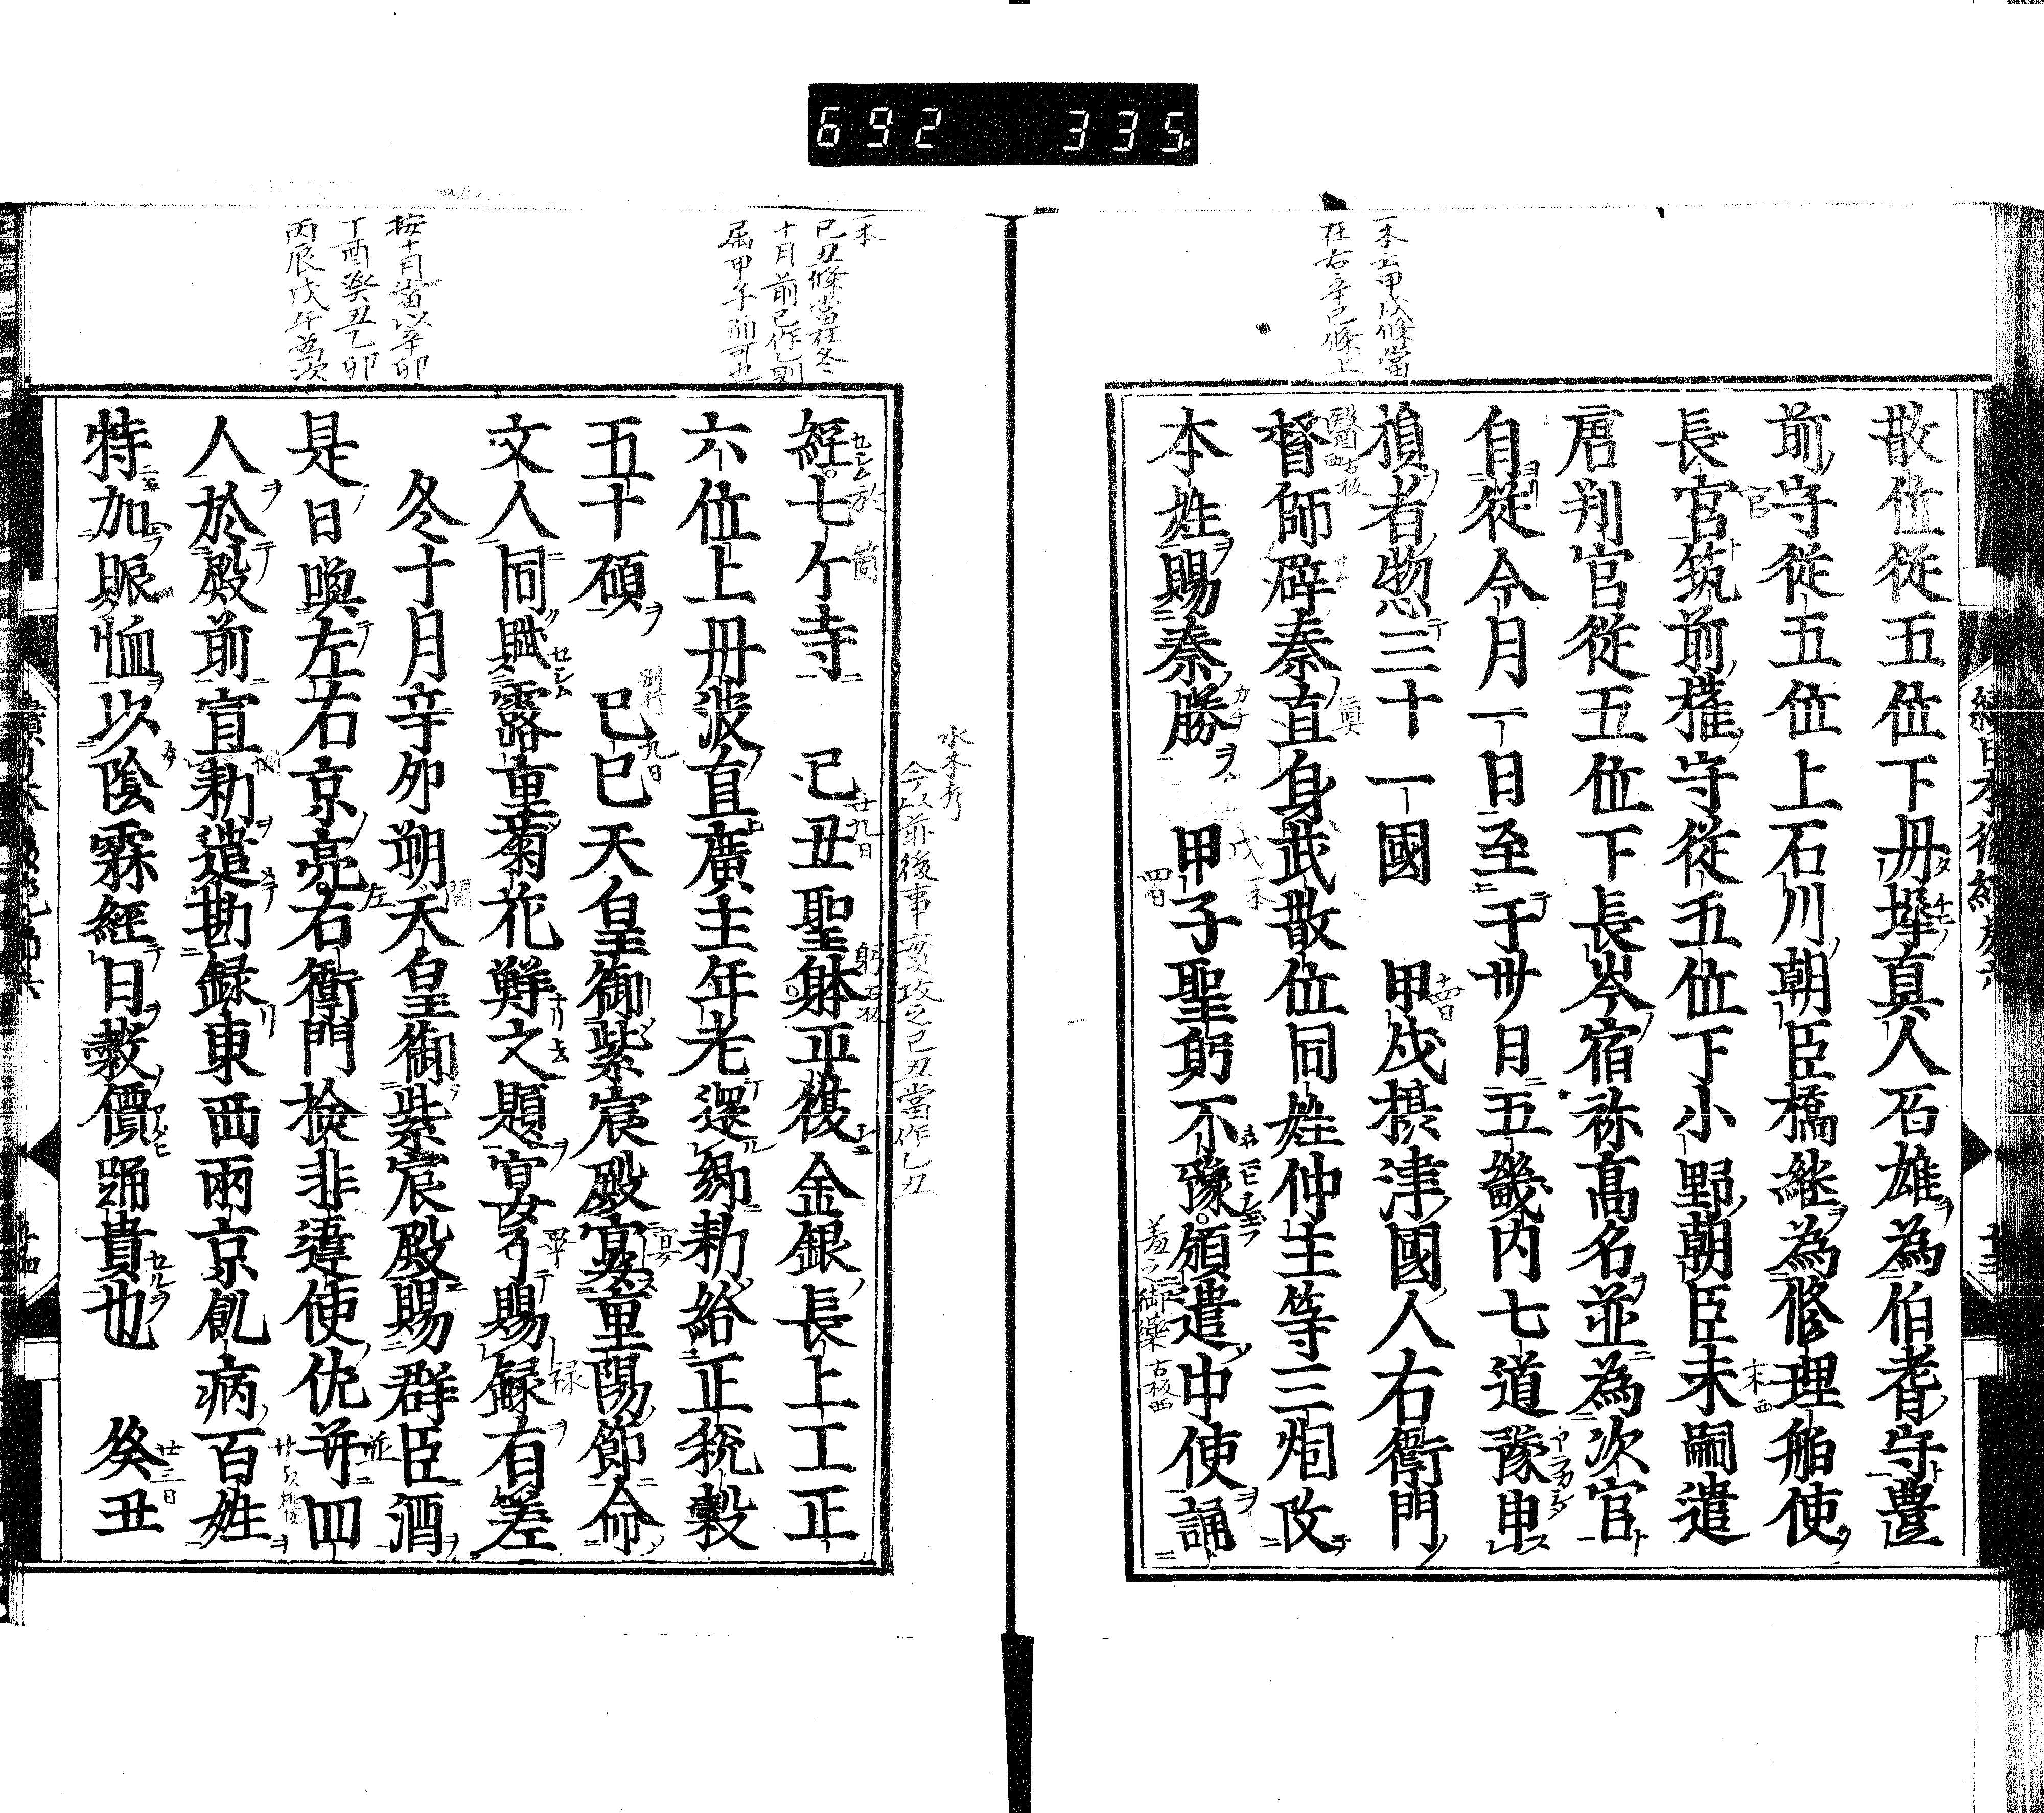 692 335
一本云甲戌條當
在右辛巳條上
散位從五位下丹墀真人石雄為伯耆守豊
前守從五位上石川朝臣橋継為修理舶使
長官筑前權守從五位下小野朝臣末嗣遣
唐判官從五位下長岑宿祢髙名並為次官
自從今月一日至于卅月五畿内七道豫申
損者惣三十一國 甲戌摂津國人右衛門
醫 古板西
督師辟秦直身武散位同姓仲主等三烟改
本姓賜秦勝 甲子聖躬不豫頒遣中使誦
羞之御藥 古板西
水本考
今以前後事實攷之己丑當作乙丑
一本
己丑條當在冬
十月前己作乙則
屬甲子而可也
經七ケ寺 己丑聖躰平復金銀長上工正
六位上丹波直廣主年老還鄉勅給正税穀
五十碩 己巳天皇御紫宸殿宴重陽節命
文人同賦露重菊花鮮之題宴了賜録有差
按十月當以辛卯
丁酉癸丑乙卯
丙辰戊午為次
冬十月辛夘朔天皇御紫宸殿賜群臣酒
是日喚左右京亮右衛門撿非違使佐并四
人於殿前宣勅遣勘録東西兩京飢病百姓
特加賑恤以陰霖經日穀價踊貴也 癸丑